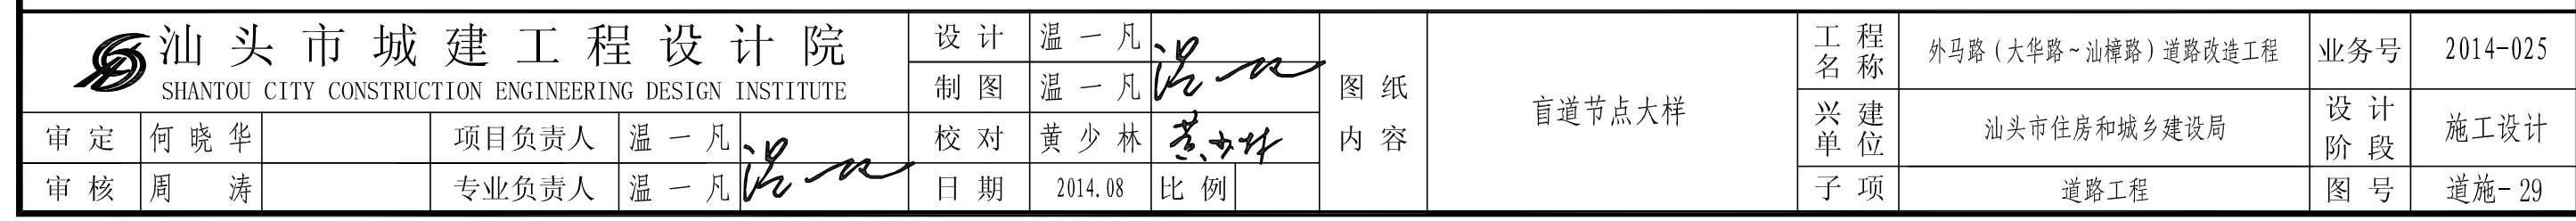 汕头市城建工程设计院
SHANTOU CITY CONSTRUCTION ENGINEERING DESIGN INSTITUTE
审定 何晓华 项目负责人 温一凡
审核 周涛 专业负责人 温一凡
设计 温一凡
制图 温一凡
校对 黄少林 黄少林
日期 2014.08 比例
图纸
内容
盲道节点大样
工程
名称
外马路（大华路~汕樟路）道路改造工程
业务号 2014-025
兴建
单位
汕头市住房和城乡建设局
设计
阶段
施工设计
子项 道路工程 图号 道施-29